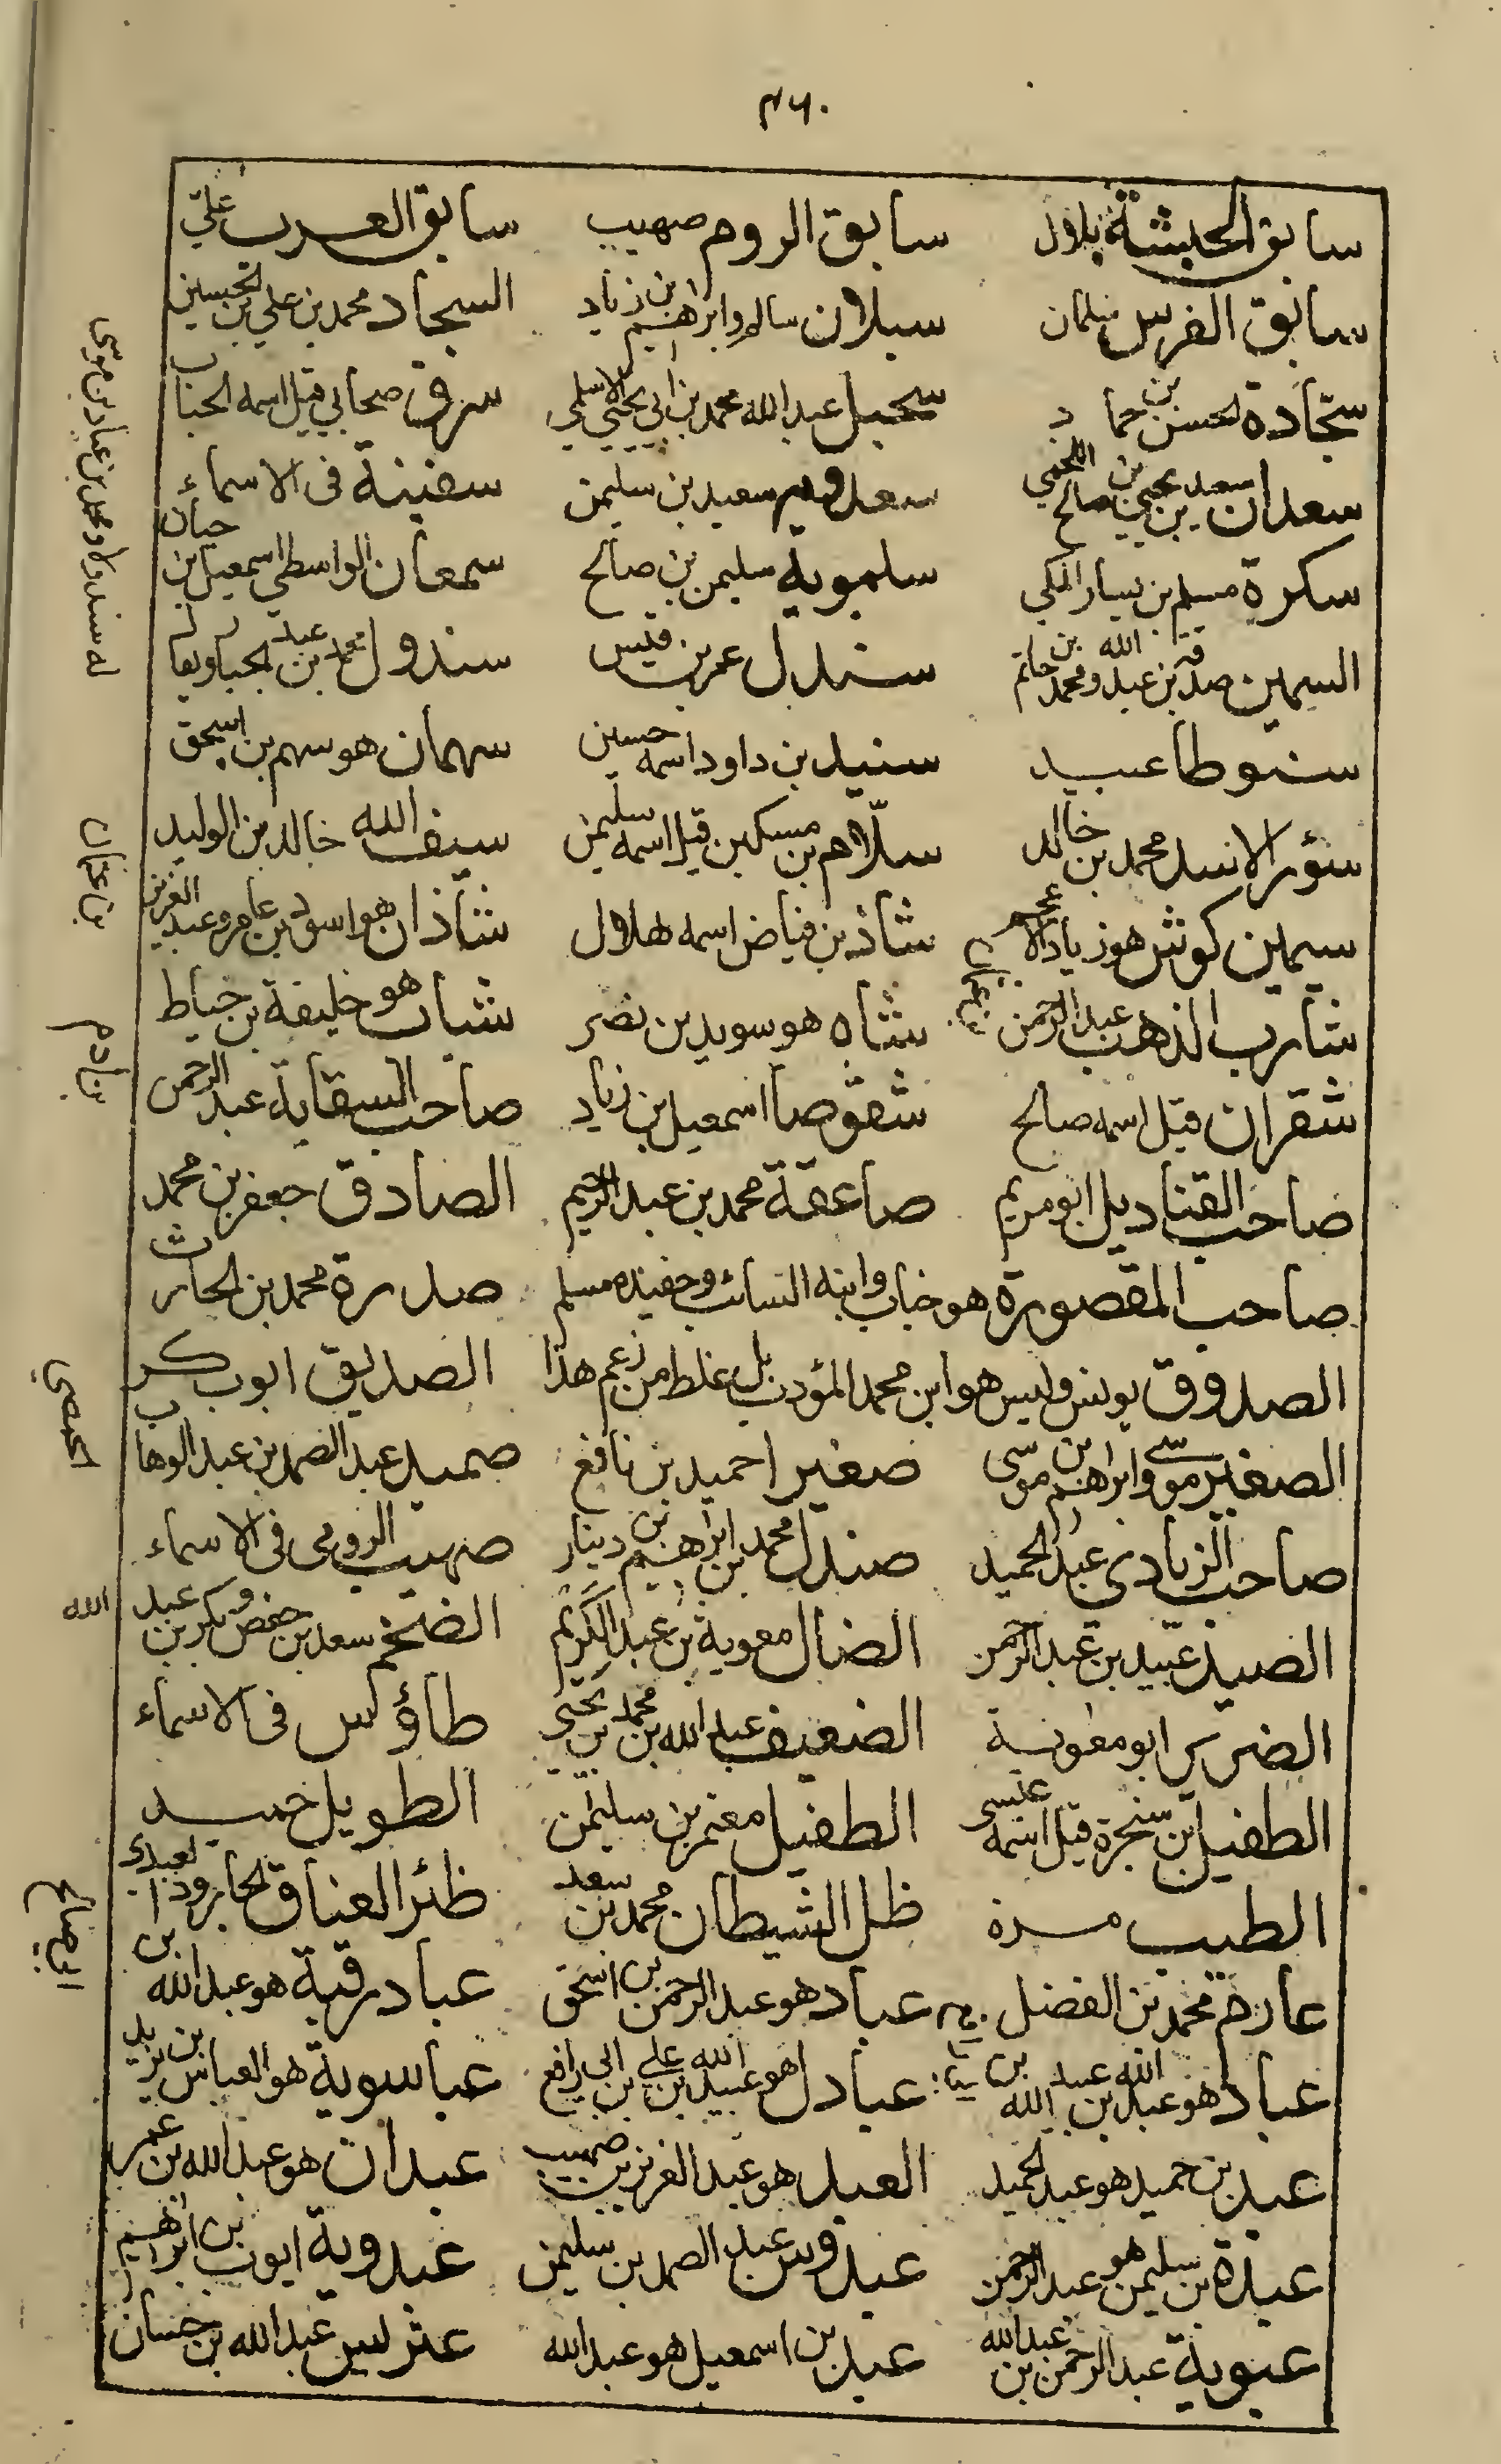 ۴۶۰
سابق الحبشة بلال سابق الروم صهيب سابق العرب علي
سابق الفرس سلمان سبلان سالم وابراهيم بن زياد السجاد محمد بن علي بن الحسين
سجادة الحسن بن حماد سحبل عبد الله محمد بن ابي يحيى الاسلمي سرق صحابي قيل اسمه الحباب
سعدان سعيد بن يحيى بن صالح اللخمي سعدويه سعيد بن سليمن سفينة في الاسماء
سكرة مسلم بن يسار المكي سلمويه سليمن بن صالح سمعان الواسطي اسمعيل بن حيان
السمين صدقة بن عبد الله ومحمد بن حاتم سندل عمر بن قيس سندول محمد بن عبد الجبار ويقال
له سندولا ومحمد بن عباد بن موسى
سنوطا عبيد سنيد بن داود اسمه حسين سهمان هو سهم بن اسحق
سؤر الاسد محمد بن خالد سلّام بن مسكين قيل اسمه سليمن سيف الله خالد بن الوليد
سيمين كوش هو زياد الاعجم شاذ بن فياض اسمه هلال شاذان هو اسود بن عامر وعبد العزيز
بن عثمان
شارب الذهب عبد الرحمن بن عثمان شاه هو سويد بن نصر شباب هو خليفة بن خياط
شقران قيل اسمه صالح شقوصا اسمعيل بن زياد صاحب السقاية عبد الرحمن
بن ادم
صاحب القناديل ابو مريم صاعقة محمد بن عبد الرحيم الصادق جعفر بن محمد
صاحب المقصورة هو خباب وابنه السائب وحفيده مسلم صدرة محمد بن الحارث
الصدوق يونس وليس هو ابن محمد المؤدب بل غلط من زعم هذا الصديق ابو بكر
الصغير موسى وابراهيم بن موسى صغيرا حميد بن نافع صميد عبد الصمد بن عبد الوهاب
صاحب الزيادي عبد الحميد صندل محمد بن ابراهيم بن دينار صهيب الرومي في الاسماء
الصيد عبيد بن عبد الرحمن الضال معوية بن عبد الكريم الضخم سعد بن حفص وبكر بن عبد الله
الضرير ابو معوية الضعيف عبد الله بن محمد بن يحيى طاؤس في الاسماء
الطفيل ابن سنجرة قيل اسمه عيسى الطفيل معتمر بن سليمن الطويل حميد
الطيب مرة ظل الشيطان محمد بن سعد ظئر العناق الجارود العبدي
عارم محمد بن الفضل عباد هو عبد الرحمن بن اسحق عباد رقية هو عبد الله بن
عباد هو عبد الله بن عبيد الله بن عبادل هو عبيد الله بن علي بن ابي رافع عباسوية هو العباس بن يزيد
عبد بن حميد هو عبد الحميد العبد هو عبد العزيز بن صهيب عبدان هو عبد الله بن عمر
عبدة بن سليمن هو عبد الرحمن عبدوس عبد الصمد بن سليمن عبدوية ايوب بن ابراهيم
عبوية عبد الرحمن بن عبد الله عبد بن اسمعيل هو عبد الله عتريس عبد الله بن حسان